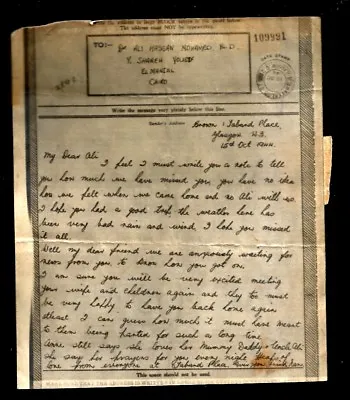 109991
TO:- Dr ALI HASSAN MOHAMED M.D.
7. SHAREH YOUSEF
EL MANIAL
CAIRO
Write the message very plainly below this line.
Sender's Address Brown 1 Taband Place,
Glasgow N.3.
15th Oct 1944.
My Dear Ali
I feel I must write you a note to tell
you how much we have missed you you have no idea
how we felt when we came home and no Ali with us.
I hope you had a good trip, the weather here has
been very bad rain and wind I hope you missed
it all.
Well my dear friend we are anxiously waiting for
news from you, to know how you got on.
I am sure you will be very excited meeting
you wife and children again and they to must
be very happy to have you back home again
I can guess how much it must have meant
to them being parted for such a long time.
Anne still says she loves her Mummy Daddy & Uncle Ali
she say her prayers for you every night
love from everyone at Taband Place, your Friends
This space should not be used.